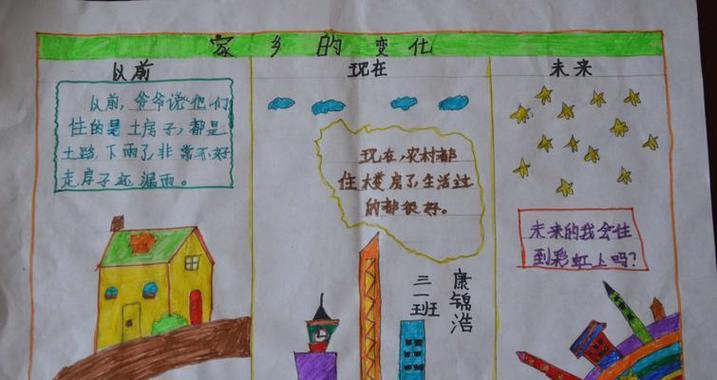 家乡的变化
以前
以前,爷爷说他们
住的是土房子,都是
土路下雨了非常不好
走房子还漏雨。
现在
现在,农村都
住楼房了生活过
的都很好。
三一班
康锦浩
未来
未来的我会住
到彩虹上吗?